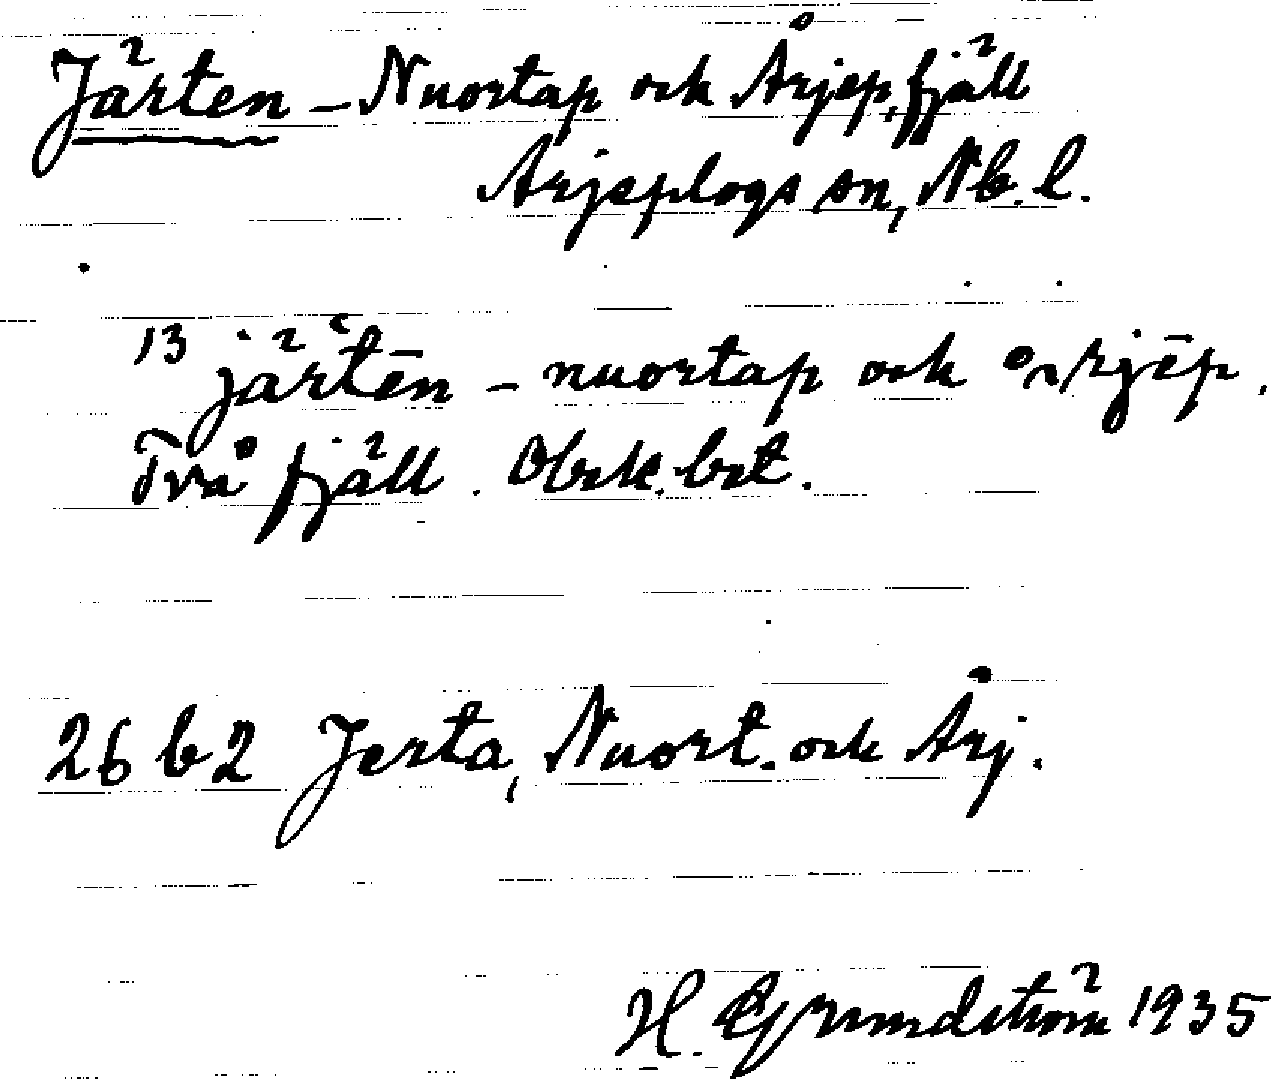 Järten – Nuortap och Årjep, fjäll
Arjeplogs sn, Nb. l.
13 järtēn – nuortap och årjēp.
Två fjäll. Obek. bet.
26 b2 Jerta, Nuort. och Årj.
H. Grundström 1935